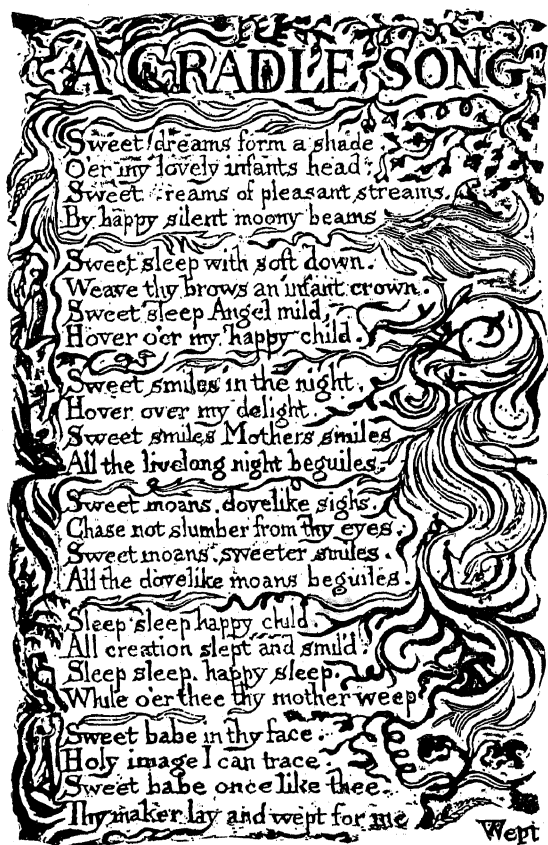 A CRADLE SONG
Sweet dreams form a shade
O'er my lovely infants head.
Sweet dreams of pleasant streams,
By happy silent moony beams
Sweet sleep with soft down.
Weave thy brows an infant crown.
Sweet sleep Angel mild,
Hover o'er my happy child.
Sweet smiles in the night,
Hover over my delight.
Sweet smiles Mothers smiles
All the livelong night beguiles.
Sweet moans, dovelike sighs,
Chase not slumber from thy eyes.
Sweet moans, sweeter smiles.
All the dovelike moans beguiles.
Sleep sleep happy child.
All creation slept and smil'd.
Sleep sleep, happy sleep,
While o'er thee thy mother weep
Sweet babe in thy face,
Holy image I can trace.
Sweet babe once like thee,
Thy maker lay and wept for me
Wept